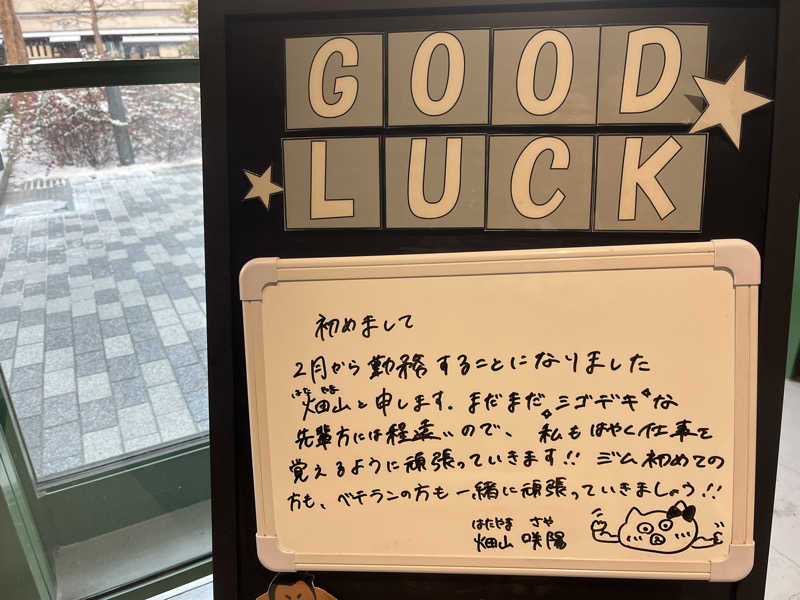 GOOD
LUCK
初めまして
2月から勤務することになりました
はた やま
畑山と申します。まだまだ"シゴデキ"な
先輩方には程遠いので、私もはやく仕事を
覚えるように頑張っていきます!! ジム初めての
方も、ベテランの方も一緒に頑張っていきましょう!!
はたやま さや
畑山 咲陽